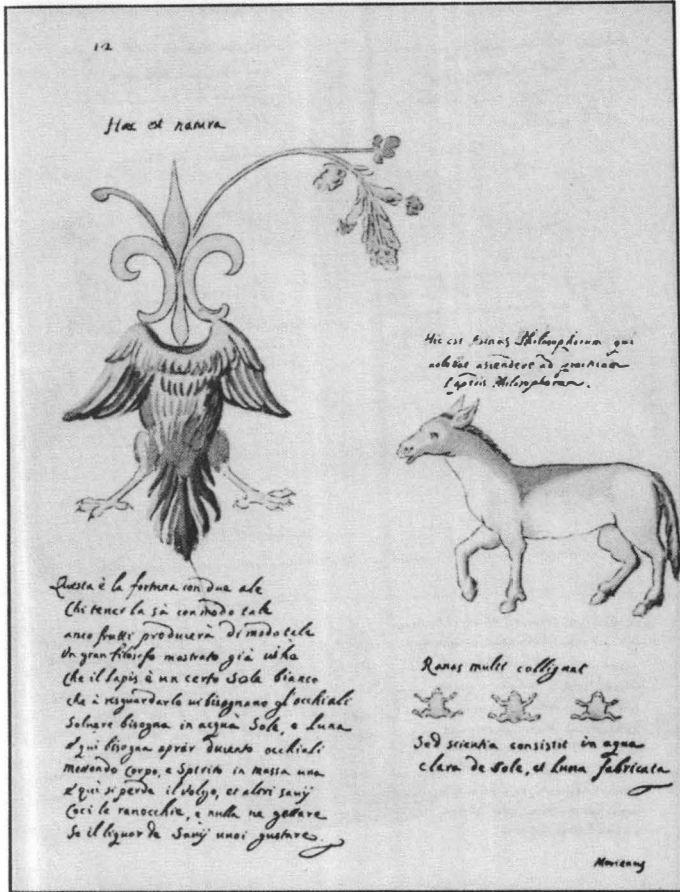 12
Haec est natura
Hic est Asinus Philosophorum qui
ascendere ad practicam
Lapidis Philosophorum.
Questa è la fortuna con due ale
Chi tener la sà con modo tale
anco frutti produrerà di modo tale
Un gran filosofo mostrato già
Che il lapis è un certo Sole bianco
che à resguardarlo vi bisognano gl'occhiali
Soluere bisogna in acqua Sole, e Luna
e qui bisogna aprir ducento occhiali
mettendo Corpo, e Spirito in massa una
e qui si perde il volgo, et altri savij
Coci le ranocchie, e nulla ne gettare
Se il liquor de Savij vuoi gustare.
Ranas multi colligunt
Sed scientia consistit in aqua
clara de Sole, et Luna fabricata
Morienus